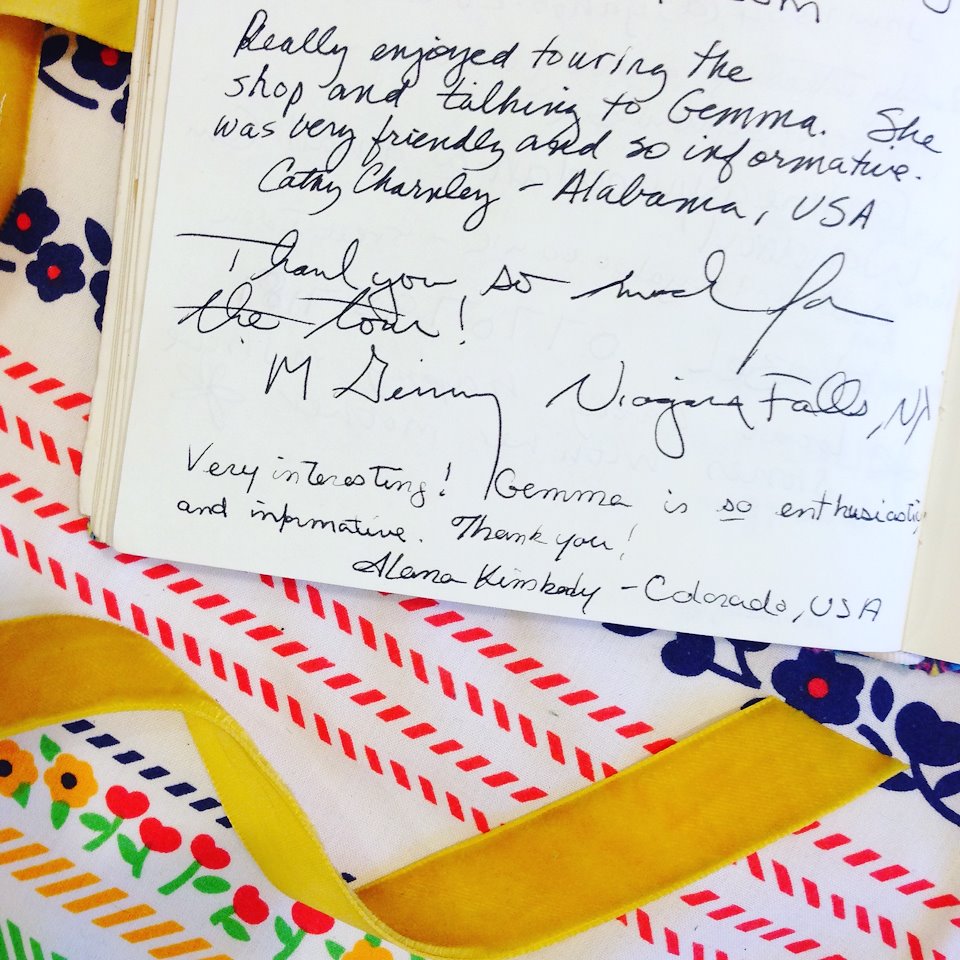 Really enjoyed touring the
shop and talking to Gemma. She
was very friendly and so informative.
Cathy Charnley - Alabama, USA
Thank you so much for
the tour!
M Ginny Niagara Falls, NY
Very interesting! Gemma is so enthusiastic
and informative. Thank you!
Alana - Colorado, USA